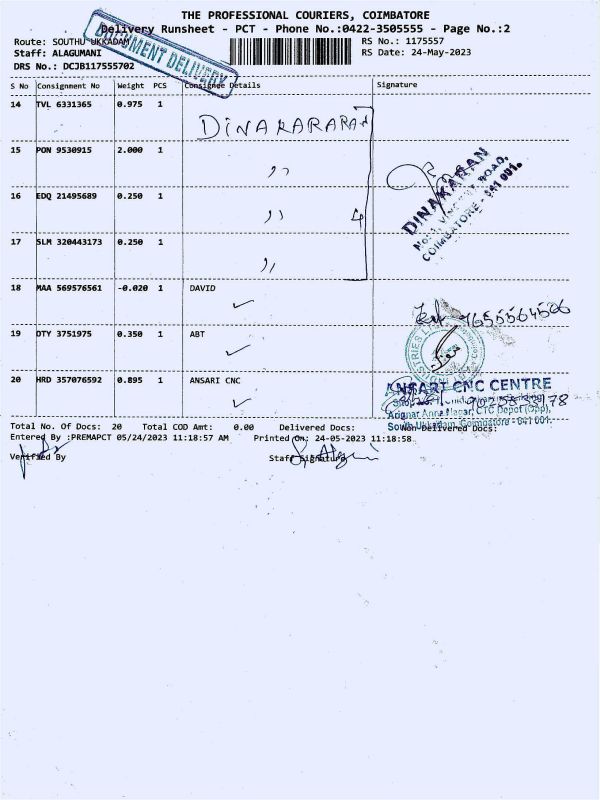 THE PROFESSIONAL COURIERS, COIMBATORE
Delivery Runsheet - PCT - Phone No.:0422-3505555 - Page No.:2
Route: SOUTHU UKKADAM
RS No.: 1175557
Staff: ALAGUMANI
RS Date: 24-May-2023
DRS No.: DCJB117555702
DOCUMENT DELIVERY
S No Consignment No Weight PCS Consignee Details Signature
14 TVL 6331365 0.975 1 DINAKARARAN
15 PON 9530915 2.000 1 ,,
16 EDQ 21495689 0.250 1 ,, 4
17 SLM 320443173 0.250 1 ,,
DINAKARAN
COIMBATORE - 641 001.
18 MAA 569576561 -0.020 1 DAVID
19 DTY 3751975 0.350 1 ABT
20 HRD 357076592 0.895 1 ANSARI CNC
ANSARI CNC CENTRE
Arignar Anna Nagar, CTC Depot (Opp),
South Ukkadam, Coimbatore - 641 001.
Total No. Of Docs: 20 Total COD Amt: 0.00 Delivered Docs: Non-Delivered Docs:
Entered By :PREMAPCT 05/24/2023 11:18:57 AM Printed On: 24-05-2023 11:18:58
Verified By Staff Signature